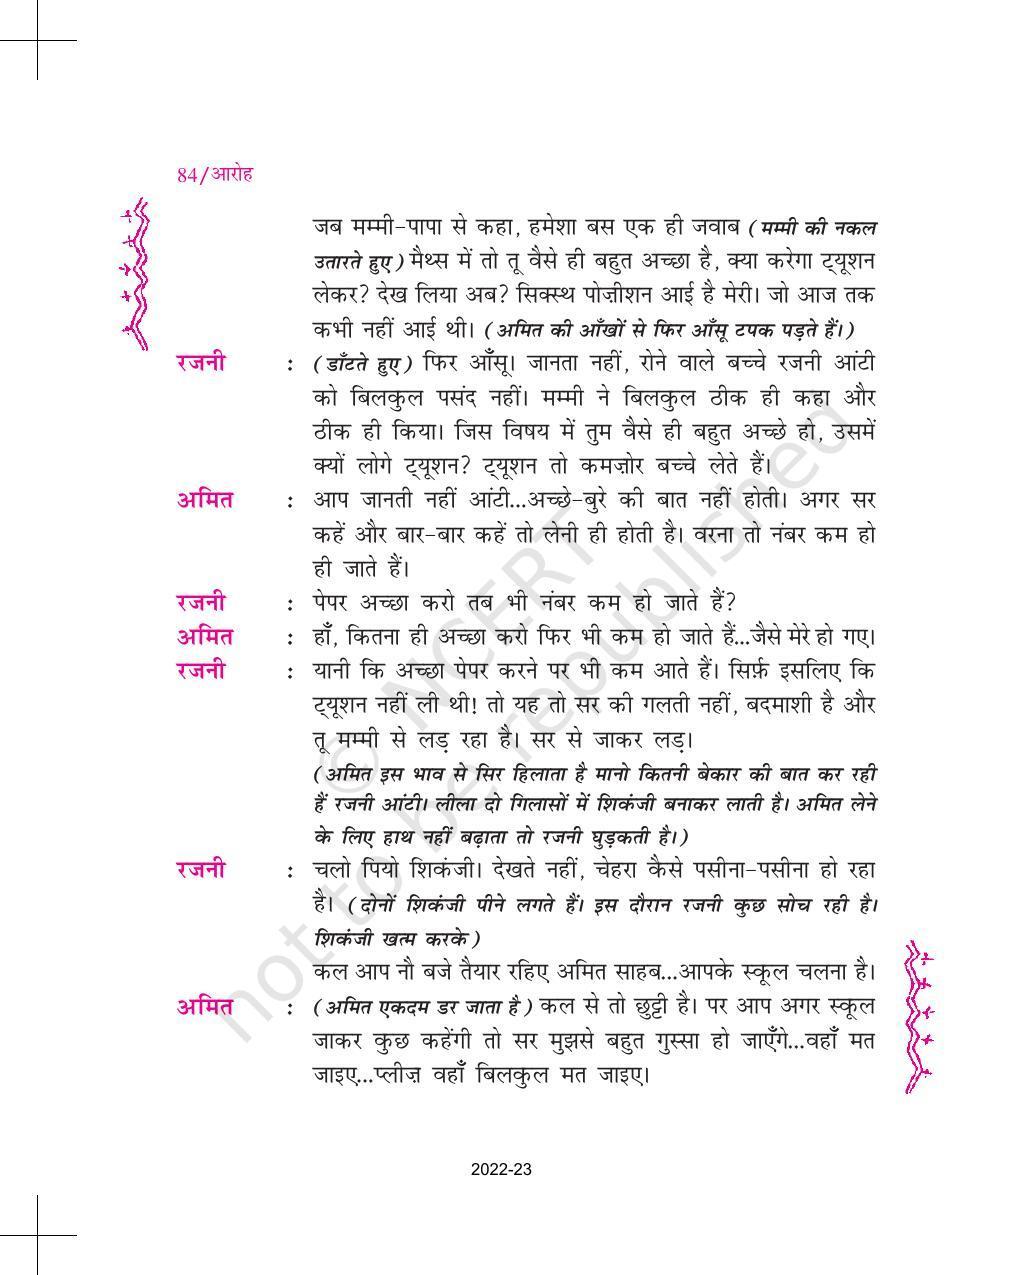 84/आरोह
जब मम्मी-पापा से कहा, हमेशा बस एक ही जवाब (मम्मी की नकल
उतारते हुए) मैथ्स में तो तू वैसे ही बहुत अच्छा है, क्या करेगा ट्यूशन
लेकर? देख लिया अब? सिक्स्थ पोज़ीशन आई है मेरी। जो आज तक
कभी नहीं आई थी। (अमित की आँखों से फिर आँसू टपक पड़ते हैं।)
रजनी : (डाँटते हुए) फिर आँसू। जानता नहीं, रोने वाले बच्चे रजनी आंटी
को बिलकुल पसंद नहीं। मम्मी ने बिलकुल ठीक ही कहा और
ठीक ही किया। जिस विषय में तुम वैसे ही बहुत अच्छे हो, उसमें
क्यों लोगे ट्यूशन? ट्यूशन तो कमज़ोर बच्चे लेते हैं।
अमित : आप जानती नहीं आंटी...अच्छे-बुरे की बात नहीं होती। अगर सर
कहें और बार-बार कहें तो लेनी ही होती है। वरना तो नंबर कम हो
ही जाते हैं।
रजनी : पेपर अच्छा करो तब भी नंबर कम हो जाते हैं?
अमित : हाँ, कितना ही अच्छा करो फिर भी कम हो जाते हैं...जैसे मेरे हो गए।
रजनी : यानी कि अच्छा पेपर करने पर भी कम आते हैं। सिर्फ़ इसलिए कि
ट्यूशन नहीं ली थी! तो यह तो सर की गलती नहीं, बदमाशी है और
तू मम्मी से लड़ रहा है। सर से जाकर लड़।
(अमित इस भाव से सिर हिलाता है मानो कितनी बेकार की बात कर रही
हैं रजनी आंटी। लीला दो गिलासों में शिकंजी बनाकर लाती है। अमित लेने
के लिए हाथ नहीं बढ़ाता तो रजनी घुड़कती है।)
रजनी : चलो पियो शिकंजी। देखते नहीं, चेहरा कैसे पसीना-पसीना हो रहा
है। (दोनों शिकंजी पीने लगते हैं। इस दौरान रजनी कुछ सोच रही है।
शिकंजी खत्म करके)
कल आप नौ बजे तैयार रहिए अमित साहब...आपके स्कूल चलना है।
अमित : (अमित एकदम डर जाता है) कल से तो छुट्टी है। पर आप अगर स्कूल
जाकर कुछ कहेंगी तो सर मुझसे बहुत गुस्सा हो जाएँगे...वहाँ मत
जाइए...प्लीज़ वहाँ बिलकुल मत जाइए।
© NCERT
not to be republished
2022-23